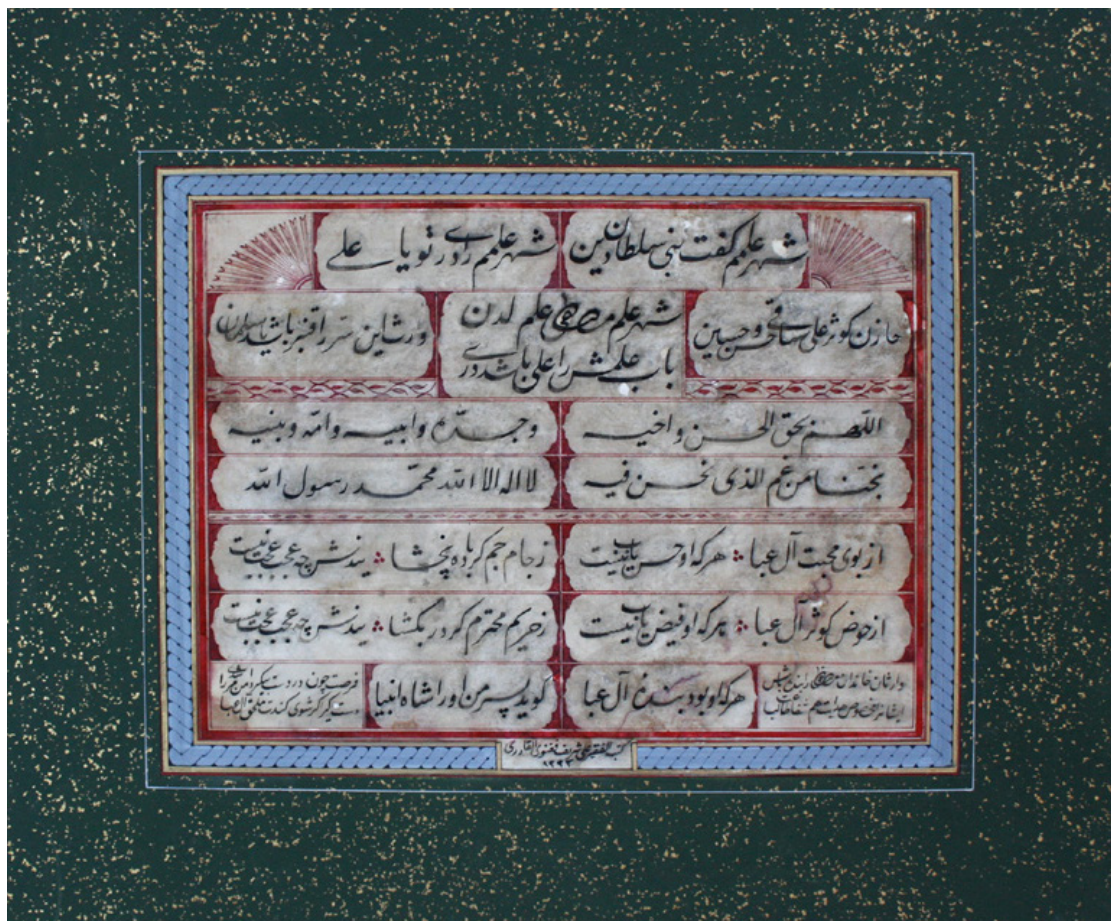 شهر علمم گفت نبی سلطان دین شهر علمم را در تو یا علی
خازن کوثر علی ساقی حسن و حسین
شهر علم مصطفی علم لدن
باب علمش را علی باشد دری
وارث این سر را قنبر باشد سلطان
اللهم بحق الحسن واخیه وجده وابیه وامه وبنیه
نجنا من غم الذی نحن فیه لا اله الا الله محمد رسول الله
از بوی محبت آل عبا هر که او حسن یاب نیست ز جام جم کر باده بخشا یندش چه عجب عجب نیست
از حوض کوثر آل عبا هر که او فیض یاب نیست ز حریم محترم کر در بکشا یندش چه عجب عجب نیست
وارثان خاندان مصطفی
هر که او بود بنده آل عبا کوید پسر من اورا شاه انبیا
فرصت چون در دست
کتبه الفقیر علی شریف القادری